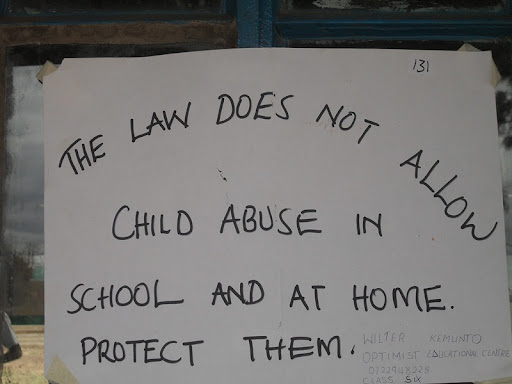 131
THE LAW DOES NOT ALLOW
CHILD ABUSE IN
SCHOOL AND AT HOME.
PROTECT THEM.
WILTER KEMUNTO
OPTIMIST EDUCATIONAL CENTRE
0722948228
CLASS SIX